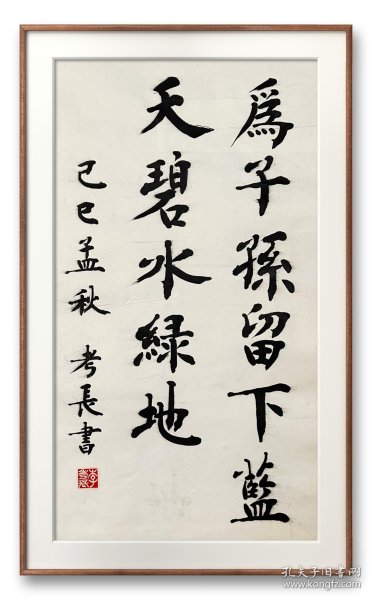 爲子孫留下藍
天碧水緑地
己巳孟秋 考長書
孔夫子旧书网
www.kongfz.com